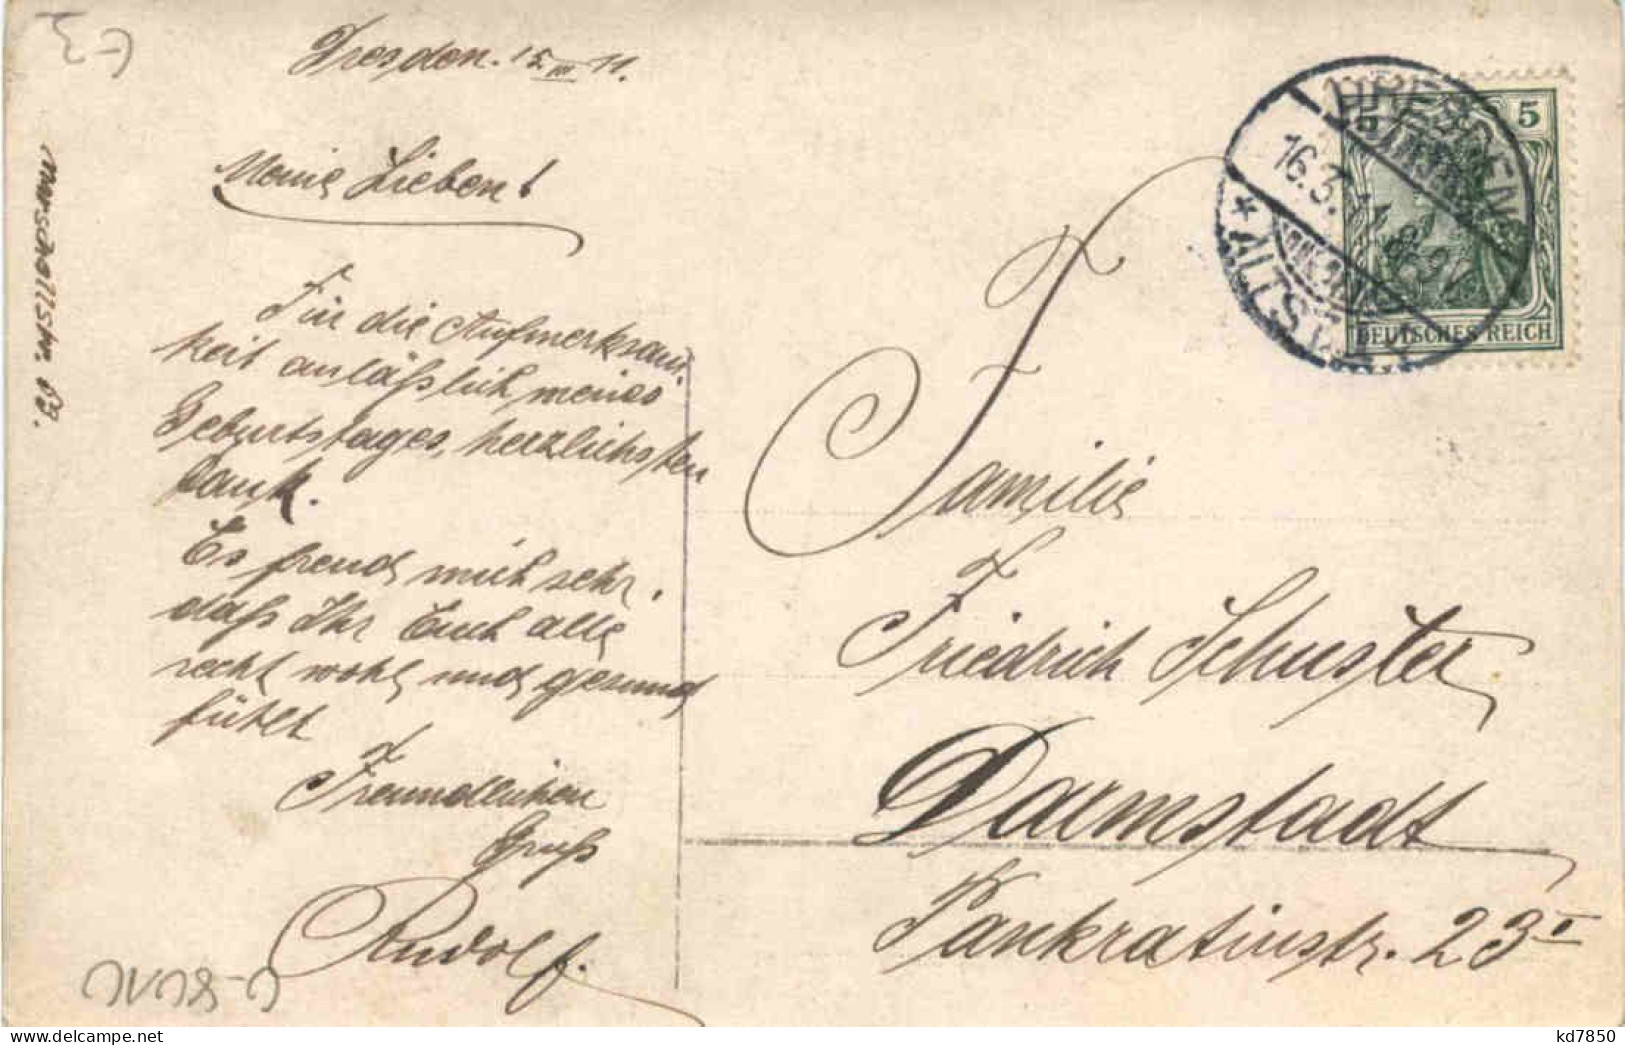 Dresden. 15. III. 11.
Meine Lieben!
Für die Aufmerksam-
keit anläßlich meines
Geburtstages, herzlichsten
Dank.
Es freud mich sehr,
daß Ihr Euch alle
recht wohl und gesund
fühlt
Freundlichen
Gruß
Rudolf.
DRESDEN
16.3.
* ALTST.
5
DEUTSCHES REICH
Familie
Friedrich Schuster
Darmstadt
Pankratiusstr. 23 I
kd7850